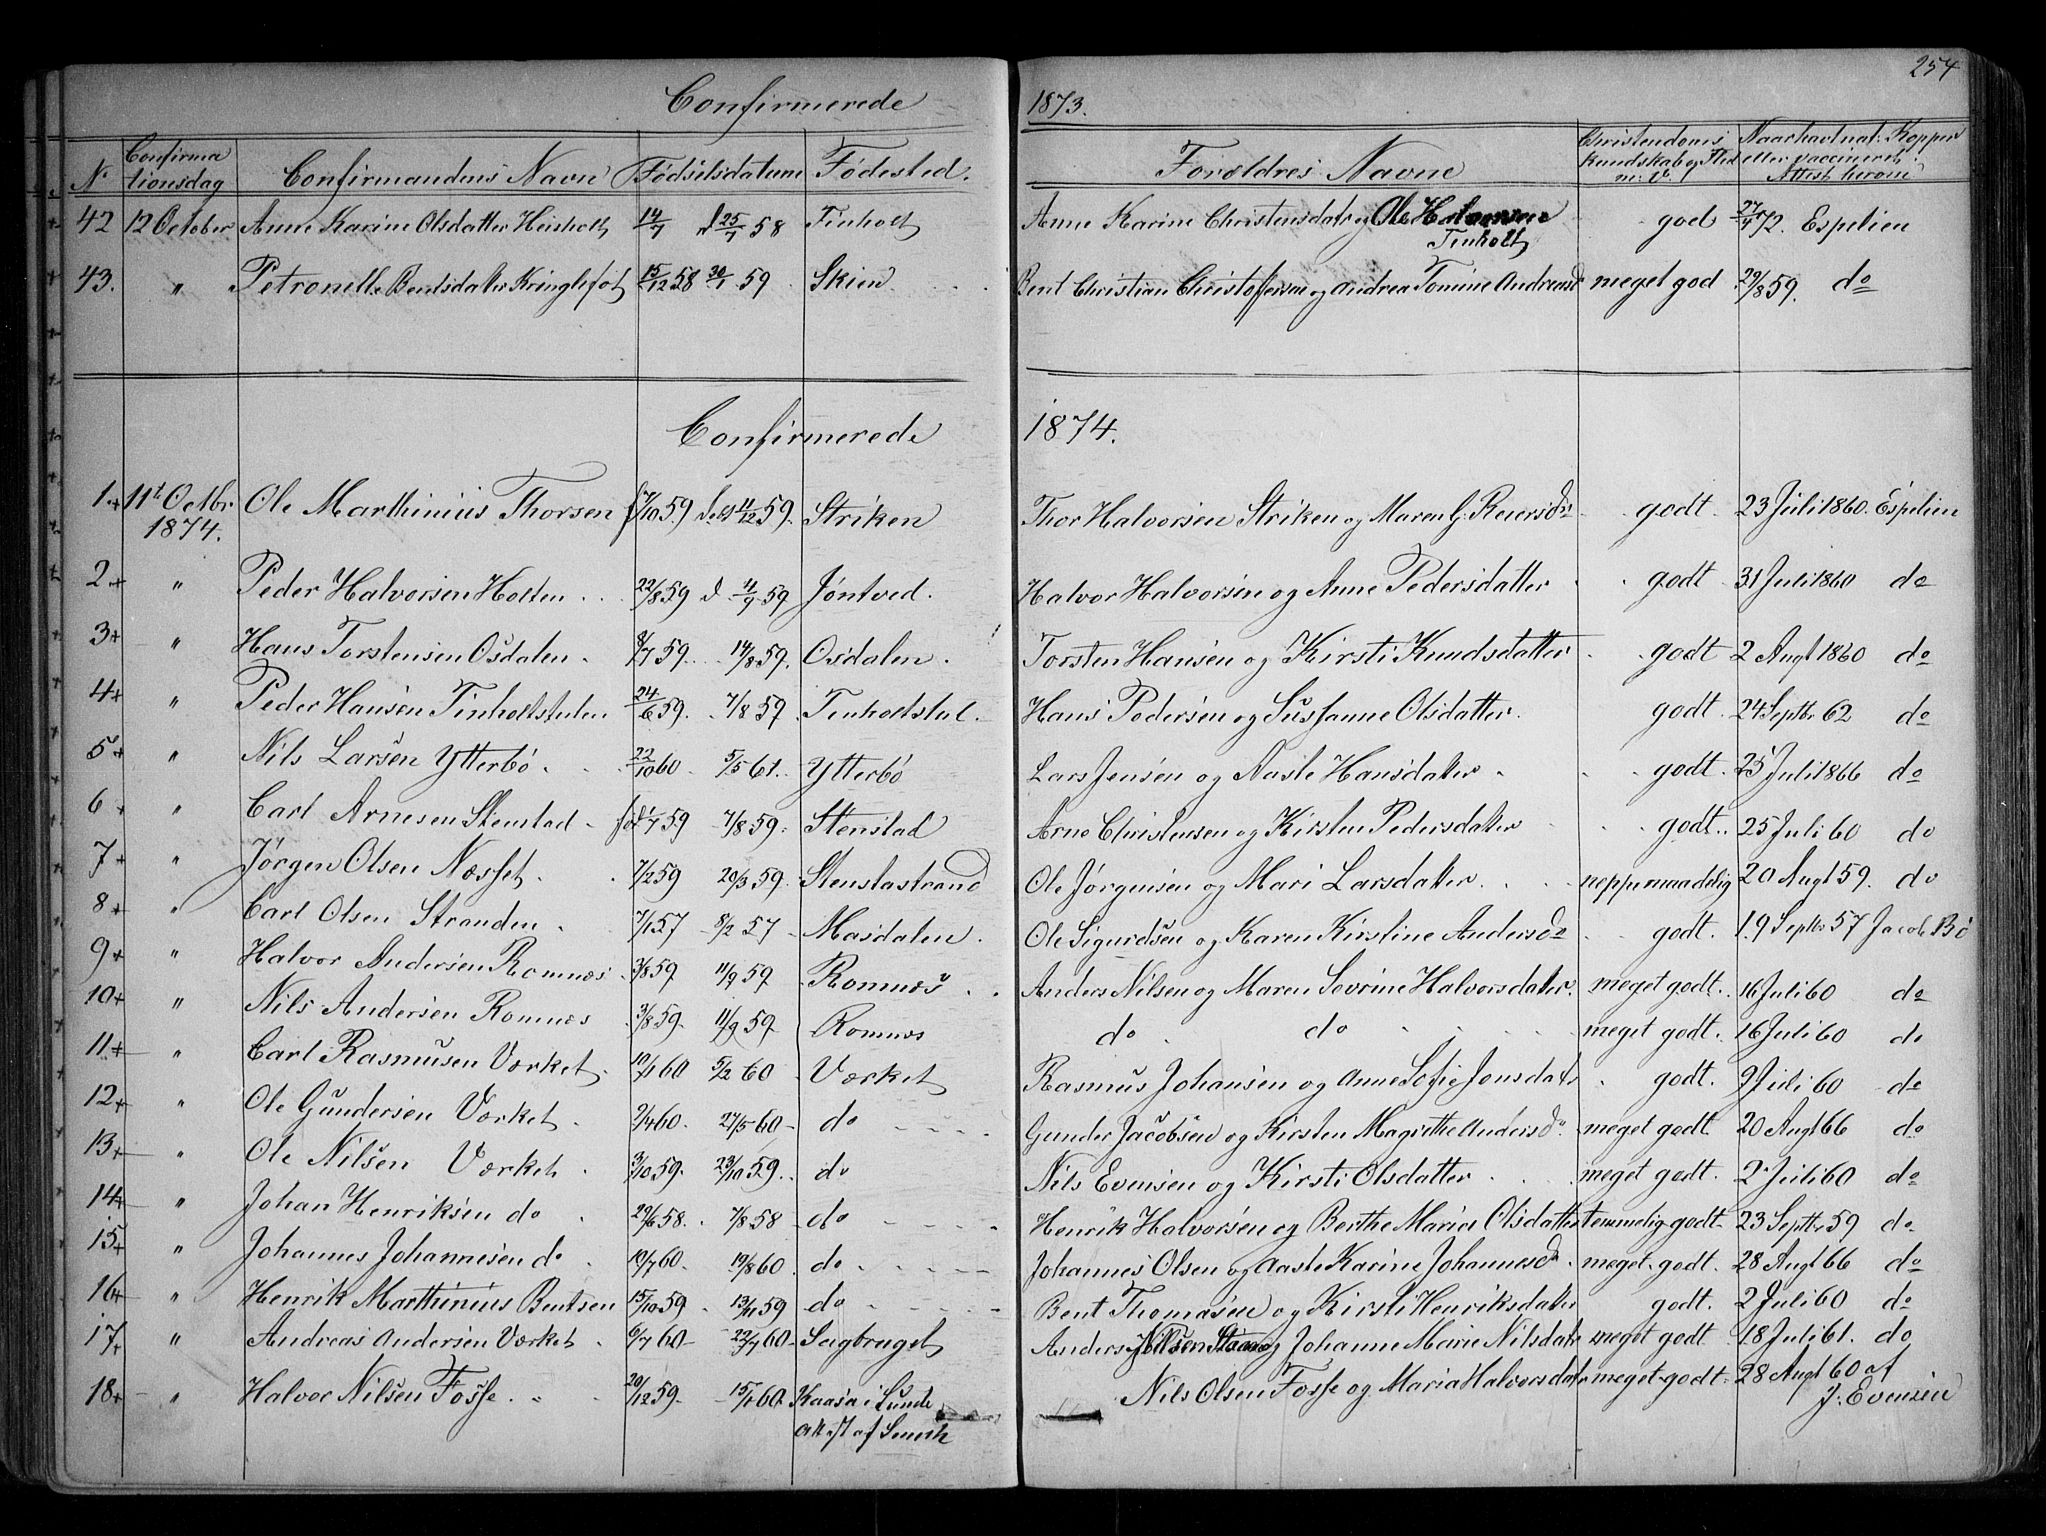 254
Confirmerede 1873.
No Confirmationsdag Confirmandens Navn Fødselsdatum Fødested. Forældres Navne Christendoms kundskab og Flid m. v. Naar havt nat: Kopper eller vaccineret. Attest herom
42 12 October Anne Karine Olsdatter Heisholt 14/7 d 25/7 58 Tinholt Anne Karine Christensdatr og Ole Halvorsen Tinholt god 27/9 72. Espelien
43. " Petronelle Bentsdatter Kringlefot 15/12 58 30/1 59. Skien Bent Christian Christoffersen og Andrea Tomine Andreasd meget god 29/8 59. do
Confirmerede 1874.
1. 11t Octbr 1874. Ole Marthinius Thorsen f 7/10 59 døbt 11/12 59. Striken Thor Halvorsen Striken og Maren G. Reiersdr godt. 23 Juli 1860. Espelien
2 " Peder Halvorsen Holten 22/8 59 d 11/9 59 Jøntved. Halvor Halvorsen og Anne Pedersdatter godt 31 Juli 1860 do
3 " Hans Torstensen Osdalen. 8/7 59. 14/8 59. Osdalen. Torsten Hansen og Kirsti Knudsdatter godt 2 Augt 1860 do
4 " Peder Hansen Tinholtstulen 24/6 59. 7/8 59. Tinholtstul. Hans Pedersen og Sussanne Olsdatter. godt. 24 Septbr 62 do
5 " Nils Larsen Ytterbö. 22/10 60 5/5 61. Ytterbö Lars Jensen og Aaste Hansdatter godt. 25 Juli 1866 do
6 " Carl Arnesen Stenstad. fød 1/7 59 7/8 59. Stenstad Arne Christensen og Kirsten Pedersdatter godt. 25 Juli 60 do
7 " Jørgen Olsen Næsset. 7/2 59 20/3 59. Stenstastrand Ole Jørgensen og Mari Larsdatter neppe maadelig 20 Augt 59. do
8 " Carl Olsen Stranden. 7/1 57 8/2 57 Masdalen. Ole Sigurdsen og Karen Kirstine Andersdr godt. 19 Septbr 57 Jacob Bö
9 " Halvor Andersen Romnæs 3/8 59 11/9 59 Romnæs Anders Nilsen og Maren Sevrine Halvorsdatter. meget godt. 16 Juli 60 do
10 " Nils Andersen Romnæs 3/8 59. 11/9 59. Romnæs do do meget godt. 16 Juli 60 do
11. " Carl Rasmusen Værket. 10/1 60 5/2 60 Værket Rasmus Johansen og Anne Sofie Jonsdatr godt. 9 Juli 60 do
12 " Ole Gundersen Værket. 9/4 60. 27/5 60 do Gunder Jacobsen og Kirsten Magrethe Andersdr. meget godt. 20 Augt 66 do
13 " Ole Nilsen Værket. 3/10 59. 23/10 59. do Nils Evensen og Kirsti Olsdatter meget godt. 2 Juli 60 do
14 " Johan Henriksen do 29/6 58. 7/8 58 do Henrik Halvorsen og Berthe Maria Olsdatter temmelig godt 23 Septbr 59 do
15 " Johannes Johannesen do 10/7 60. 19/8 60. do Johannes Olsen og Aaste Karine Johannesdr. meget godt. 28 Augt 66 do
16 " Henrik Marthinius Bentsen 15/10 59 13/11 59 do Bent Thomasen og Kirsti Henriksdatter godt. 2 Juli 60 do
17 " Andreas Andersen Værket 6/7 60 22/7 60 Sagbruget Anders Nilsen og Johanne Marie Nilsdatr meget godt 18 Juli 61. do
18 " Halvor Nilsen Fosse. 20/12 59. 15/1 60. Kaasa i Lunde attest af Nils Olsen Fosse og Maria Halvorsdatr meget godt. 28 Augt 60 af J. Evensen